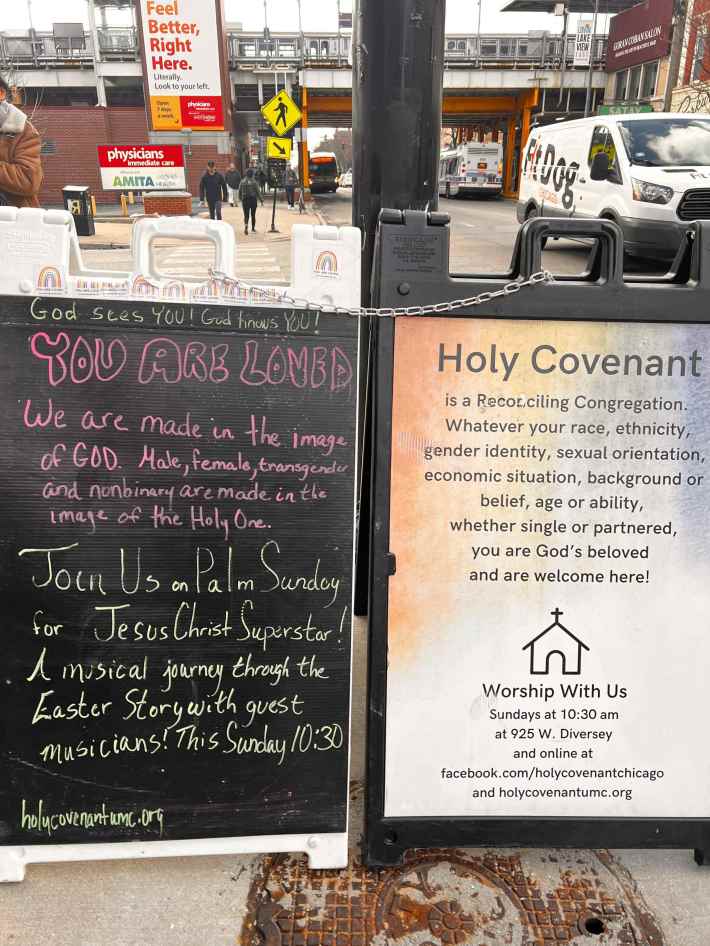 Feel
Better,
Right
Here.
Literally.
Look to your left.
physicians
physicians
immediate care
AMITA
LAKE
VIEW
GORAN COBAN SALON
Fit Dog
God sees YOU! God knows YOU!
YOU ARE LOVED
We are made in the image
of GOD. Male, female, transgender
and nonbinary are made in the
image of the Holy One.
Join Us on Palm Sunday
for Jesus Christ Superstar!
A musical journey through the
Easter Story with guest
musicians! This Sunday 10:30
holycovenantumc.org
Holy Covenant
is a Reconciling Congregation.
Whatever your race, ethnicity,
gender identity, sexual orientation,
economic situation, background or
belief, age or ability,
whether single or partnered,
you are God's beloved
and are welcome here!
Worship With Us
Sundays at 10:30 am
at 925 W. Diversey
and online at
facebook.com/holycovenantchicago
and holycovenantumc.org